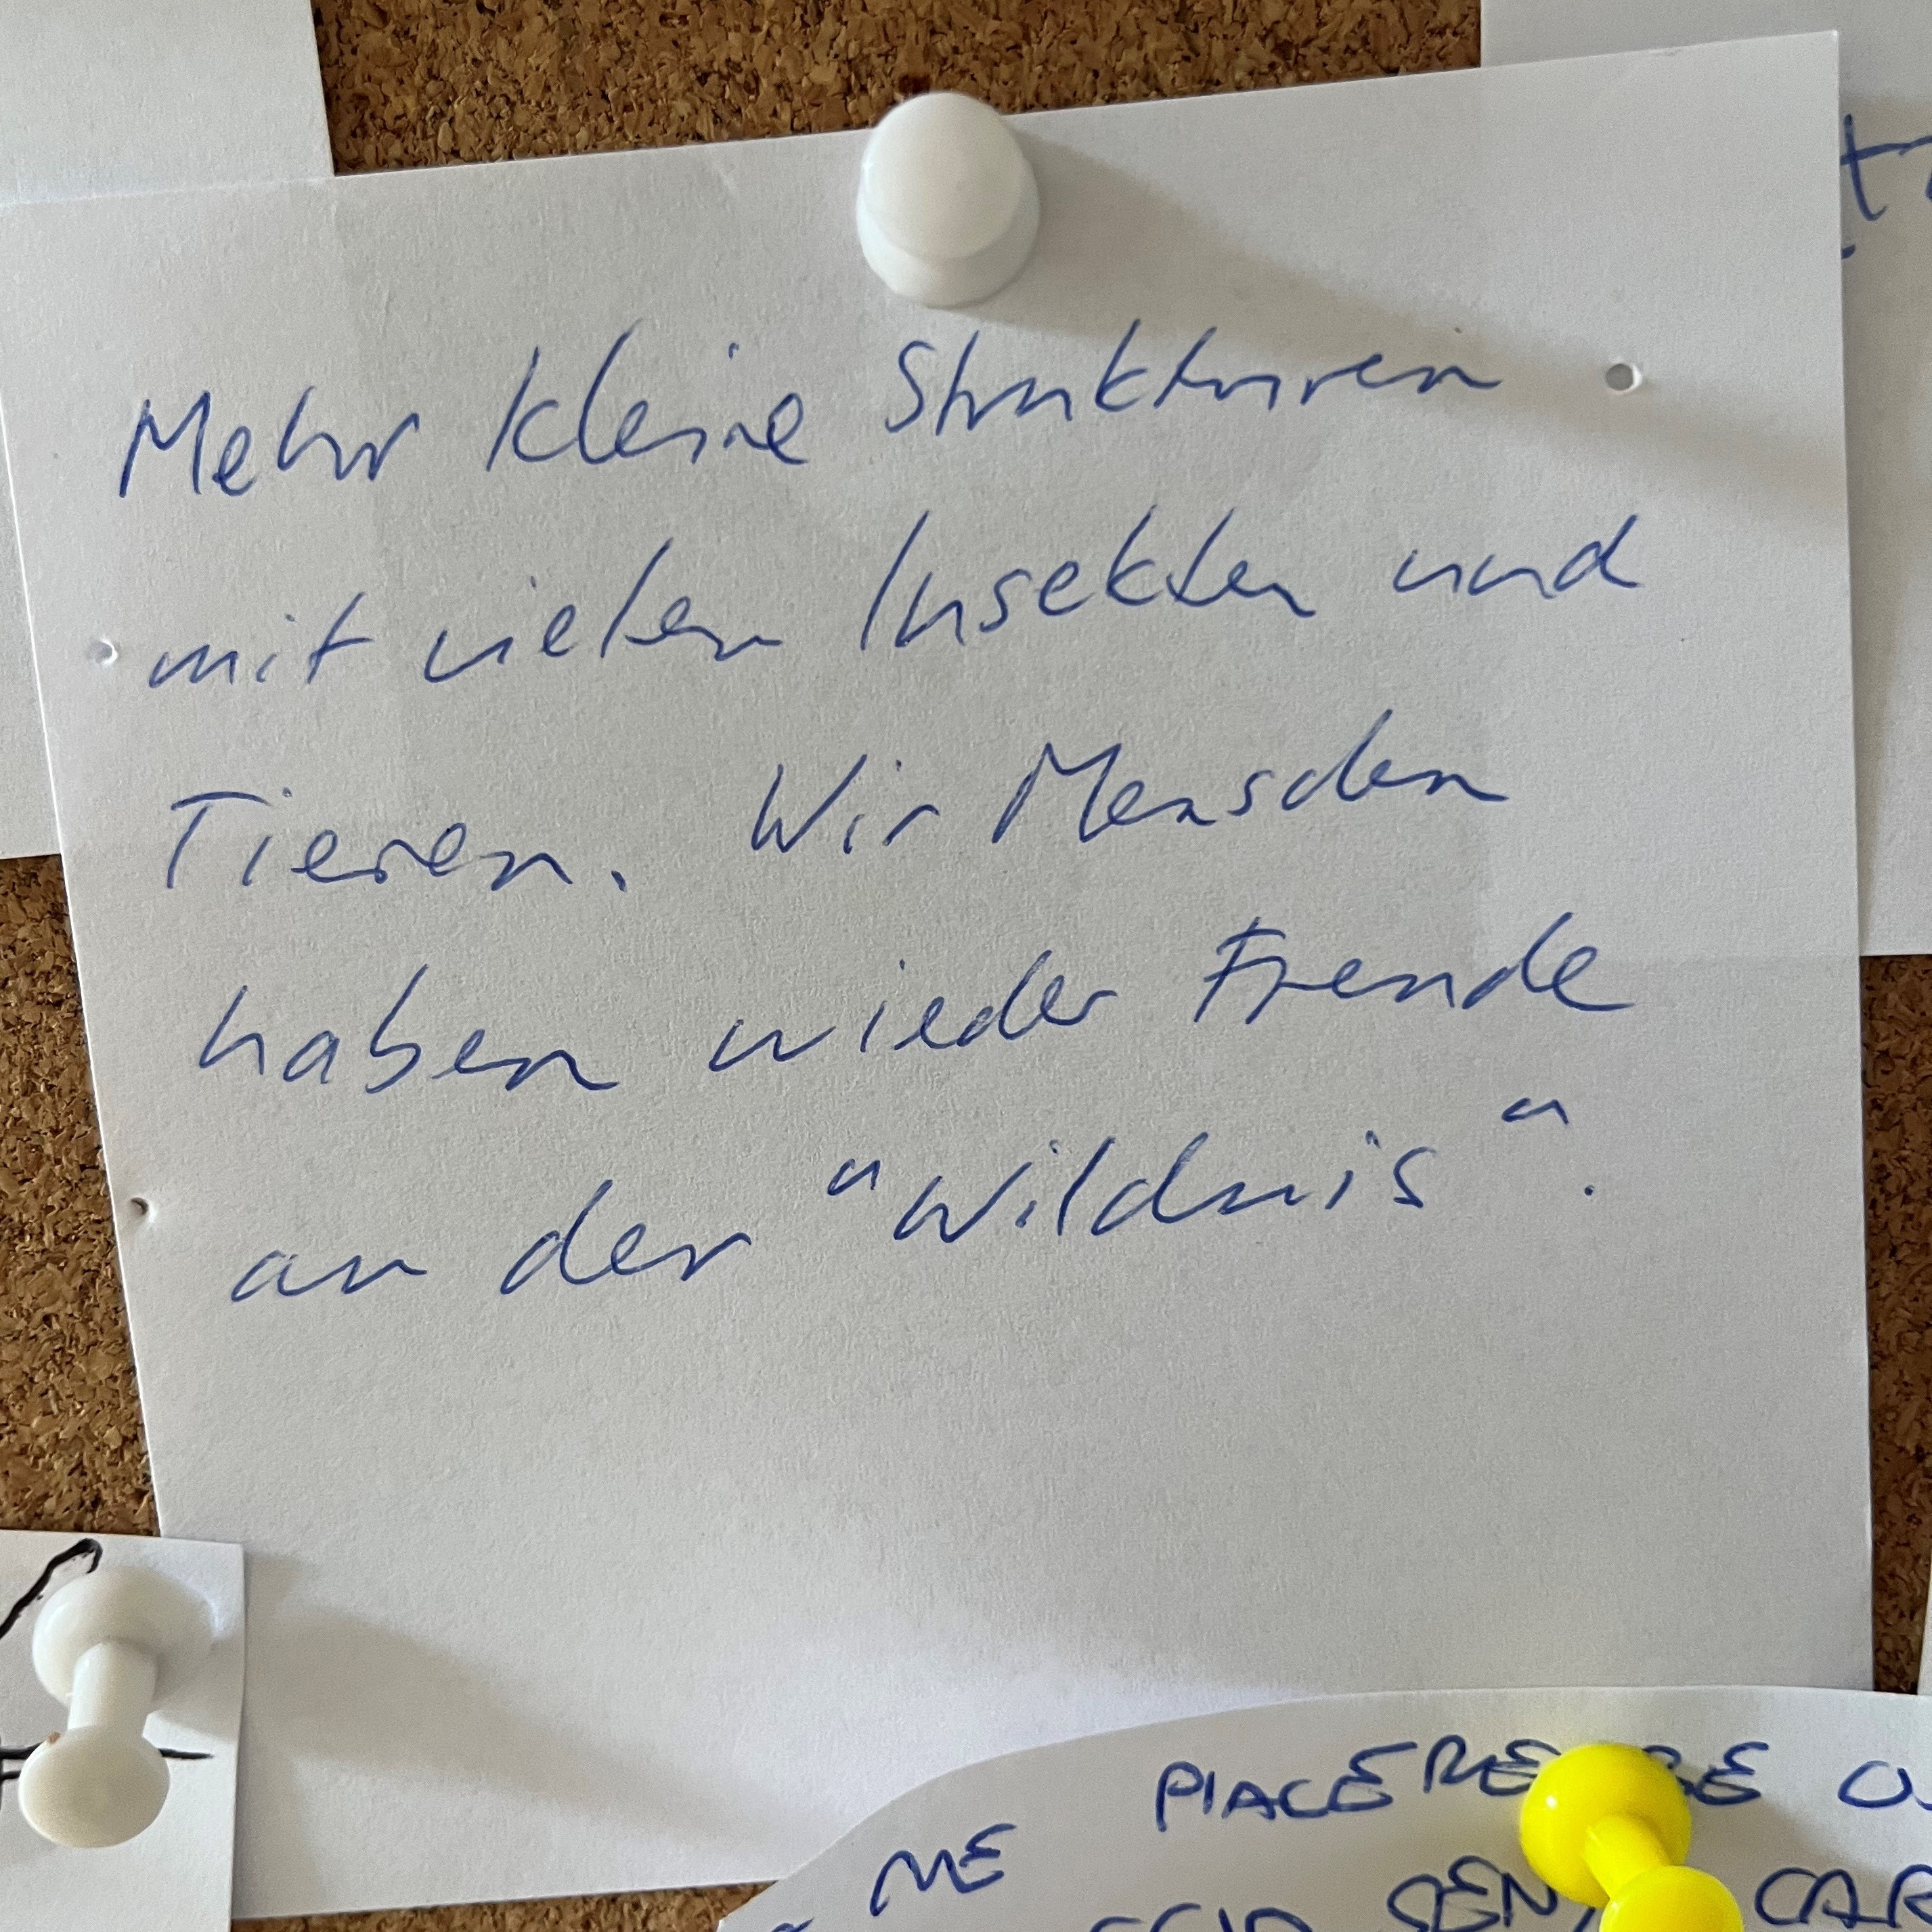 Mehr kleine Strukturen
mit vielen Insekten und
Tieren. Wir Menschen
haben wieder Freude
an der "Wildnis".
PIACERE
ME